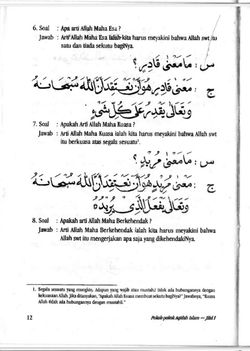 6. Soal : Apa arti Allah Maha Esa ?
Jawab : Arti Allah Maha Esa ialah kita harus meyakini bahwa Allah swt itu
satu dan tiada sekutu bagiNya.
س : مَا مَعْنَى قَادِيرٍ ؟
ج : مَعْنَى قَادِيرٍ هُوَ أَنْ نَعْتَقِدَ أَنَّ اللهَ سُبْحَانَهُ
وَتَعَالَى يَقْدِرُ عَلَى كُلِّ شَيْءٍ
7. Soal : Apakah Arti Allah Maha Kuasa ?
Jawab : Arti Allah Maha Kuasa ialah kita harus meyakini bahwa Allah swt
itu berkuasa atas segala sesuatu¹.
س : مَا مَعْنَى مُرِيْدٍ ؟
ج : مَعْنَى مُرِيْدٍ هُوَ أَنْ نَعْتَقِدَ أَنَّ اللهَ سُبْحَانَهُ
وَتَعَالَى يَفْعَلُ الَّذِى يُرِيْدُهُ
8. Soal : Apakah arti Allah Maha Berkehendak ?
Jawab : Arti Allah Maha Berkehendak ialah kita harus meyakini bahwa
Allah swt itu mengerjakan apa saja yang dikehendakiNya.
1. Segala sesuatu yang mungkin. Adapun yang wajib atau mustahil tidak ada hubungannya dengan
kekuasaan Allah. Jika ditanyakan, "Apakah Allah Kuasa membuat sekutu bagiNya?" Jawabnya, "Kuasa
Allah tidak ada hubungannya dengan mustahil."
12
Pokok-pokok Aqidah Islam — Jilid 1